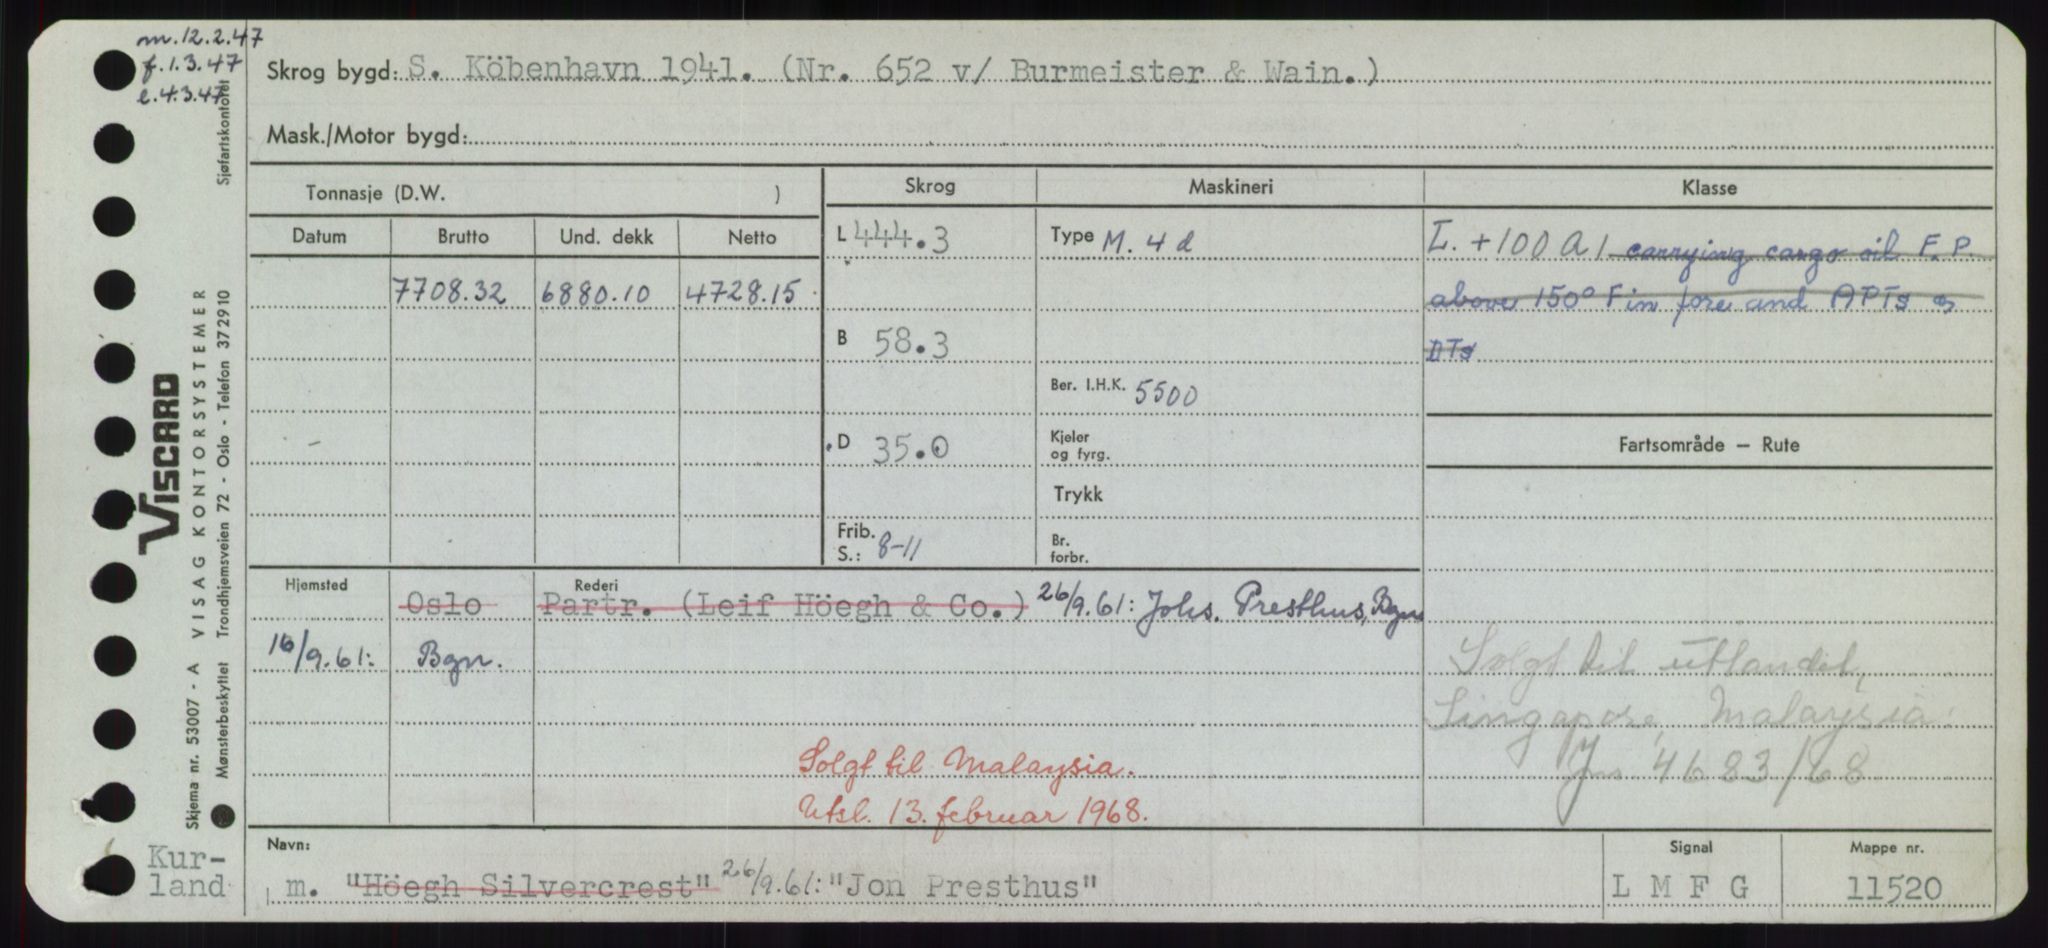 m.12.2.47
f.1.3.47
e.4.3.47
Sjøfartskontoret
VISCARD
VISAG KONTORSYSTEMER
Skjema nr. 53007 - A
Mønsterbeskyttet Trondhjemsveien 72 - Oslo - Telefon 372910
Kur-
land
Skrog bygd: S. Köbenhavn 1941. (Nr. 652 v/ Burmeister & Wain.)
Mask./Motor bygd:
Tonnasje (D.W. )
Skrog Maskineri Klasse
Datum Brutto Und. dekk Netto
7708.32 6880.10 4728.15
L 444.3
B 58.3
D 35.0
Frib.
S.: 8-11
Type M. 4 d
Ber. I.H.K. 5500
Kjeler
og fyrg.
Trykk
Br.
forbr.
L. +100 A 1 carrying cargo oil F.P.
above 150° F in fore and APTs &
DTs
Fartsområde — Rute
Solgt til utlandet,
Singapore, Malaysia.
Jnr. 4683/68
Hjemsted Rederi
Oslo Partr. (Leif Höegh & Co.) 26/9.61: Johs. Presthus, Bgn
16/9.61: Bgn.
Solgt til Malaysia.
Utsl. 13. februar 1968.
Navn: Signal Mappe nr.
m. "Höegh Silvercrest" 26/9.61: "Jon Presthus" L M F G 11520